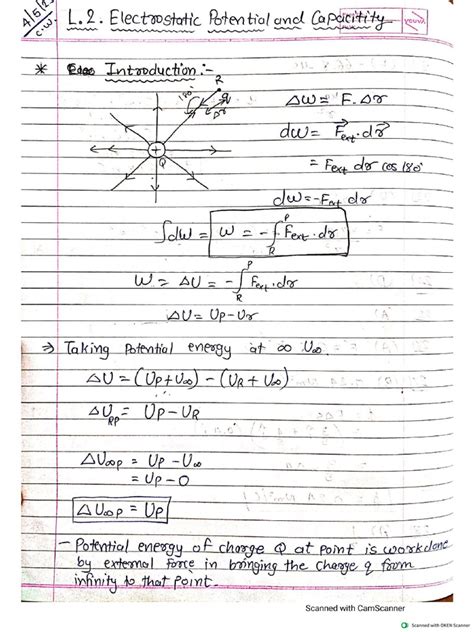 4/5/2
C.W
L.2. Electrostatic Potential and Capacitity
* Introduction :-
R
180°
q
Δr
Q
ΔW = F. Δr
dW = F⃗ext . dr⃗
= Fext dr cos 180°
dW = -Fext dr
∫dW = W = -∫ᴿᴾ Fext . dr
W = ΔU = -∫ᴿᴾ Fext . dr
ΔU = UP - Ur
⇒ Taking Potential energy at ∞ U∞.
ΔU = (UP + U∞) - (UR + U∞)
ΔURP = UP - UR
ΔU∞P = UP - U∞
= UP - 0
ΔU∞P = UP
- Potential energy of charge Q at point is workdone
by external Force in bringing the Charge q from
infinity to that Point.
Scanned with CamScanner
Scanned with OKEN Scanner